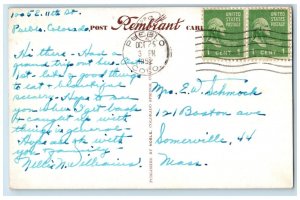 1006 E. 11th St
Pueblo, Colorado.
POST Rembrant CARD
PUEBLO
OCT 25
PM
1952
COLO.
UNITED STATES
POSTAGE
1 CENT 1
UNITED STATES
POSTAGE
1 CENT 1
Hi there - Had a
grand trip out bus. Ent.
lots of good things
to eat & beautiful
scenery. Hope to see
you when I get back
& caught up with
things in general.
Hope all ok with
you & family
Nellie N. Williams
Mrs. E. W. Schmock
121 Boston ave
Somerville, 44
Mass.